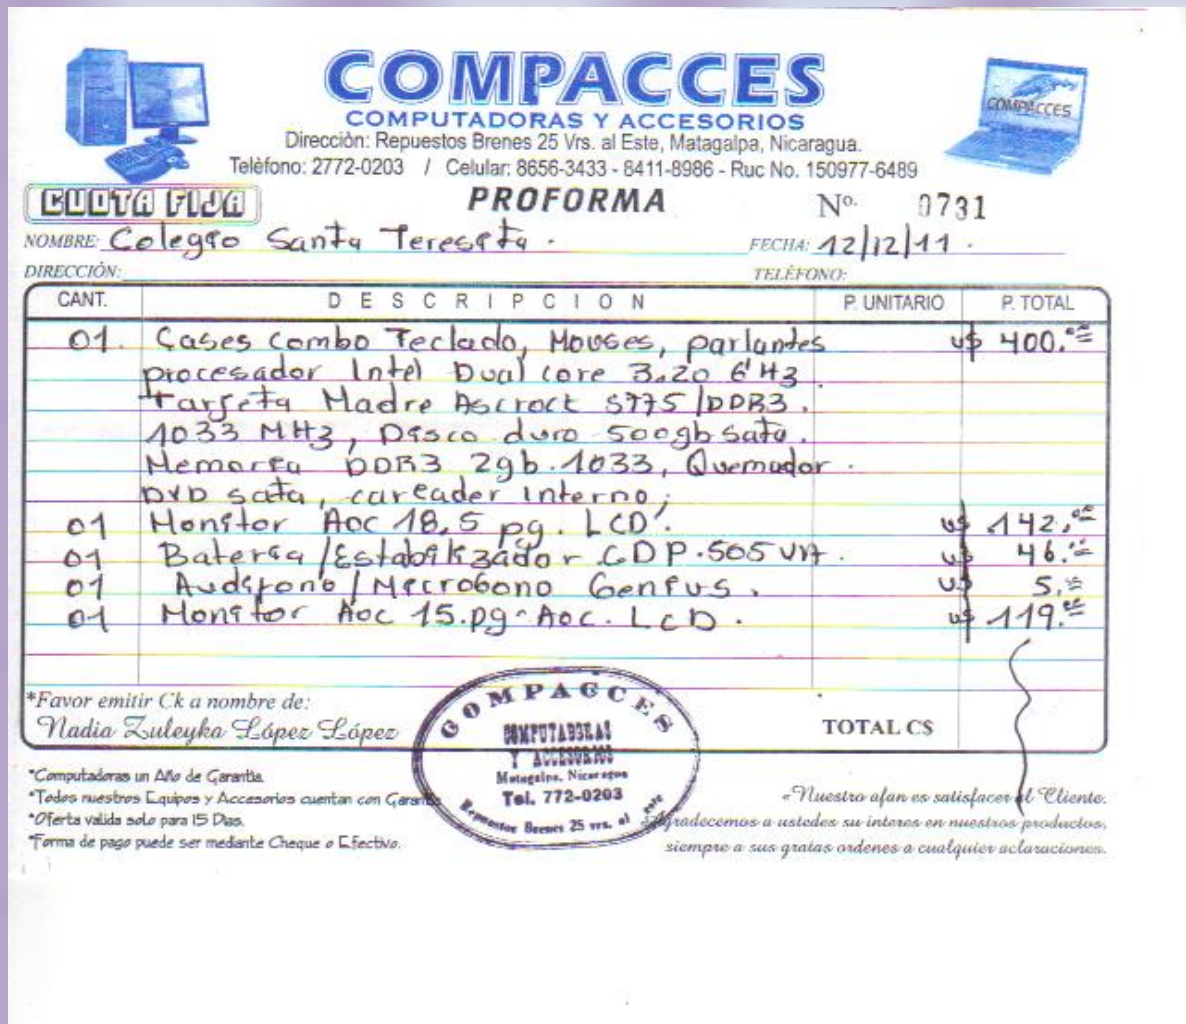 COMPACCES
COMPUTADORAS Y ACCESORIOS
Dirección: Repuestos Brenes 25 Vrs. al Este, Matagalpa, Nicaragua.
Teléfono: 2772-0203 / Celular: 8656-3433 - 8411-8986 - Ruc No. 150977-6489
COMPACCES
CUOTA FIJA
PROFORMA
Nº. 0731
NOMBRE: Colegio Santa Teresita.
FECHA: 12/12/11.
DIRECCIÓN:
TELÉFONO:
CANT. DESCRIPCION P. UNITARIO P. TOTAL
01. Cases combo Teclado, Mouses, parlantes u$ 400.00
procesador Intel Dual core 3.20 GHz
Tarjeta Madre Ascrock S775/DDR3.
1033 MHz, Disco duro 500gb sata.
Memoria DDR3 2gb.1033, Quemador.
DVD sata, careader interno.
01 Monitor Aoc 18,5 pg. LCD. u$ 142.00
01 Bateria/Estabilizador CDP.505 VA. u$ 46.00
01 Audifono/Microbono Genius. u$ 5.00
01 Monitor Aoc 15.pg-Aoc. LCD. u$ 119.00
*Favor emitir Ck a nombre de:
Nadia Zuleyka López López
TOTAL C$
COMPACCES
COMPUTADORAS
Y ACCESORIOS
Matagalpa, Nicaragua
Tel. 772-0203
Repuestos Brenes 25 vrs. al este
*Computadoras un Año de Garantia.
*Todos nuestros Equipos y Accesorios cuentan con Garantia
*Oferta valida solo para 15 Dias.
*Forma de pago puede ser mediante Cheque o Efectivo.
"Nuestro afan es satisfacer al Cliente.
Agradecemos a ustedes su interes en nuestros productos,
siempre a sus gratas ordenes a cualquier aclaraciones.